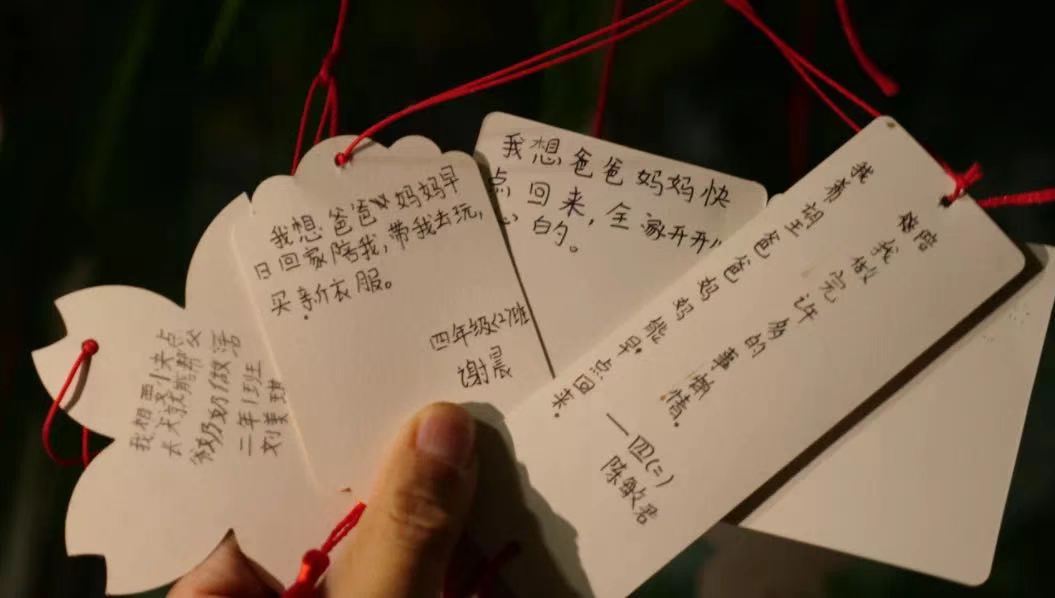 我想爸爸妈妈早
日回家陪我,带我去玩,
买新衣服。
四年级(2)班
谢晨
我想爸爸妈妈快
点回来,全家开开
的。
我希望爸爸妈妈能早点回来。
陪我做完许多的事情。
—四(二)
陈敏君
我想要快点
长大就能帮
爷奶奶做活
二年1班
刘美琪